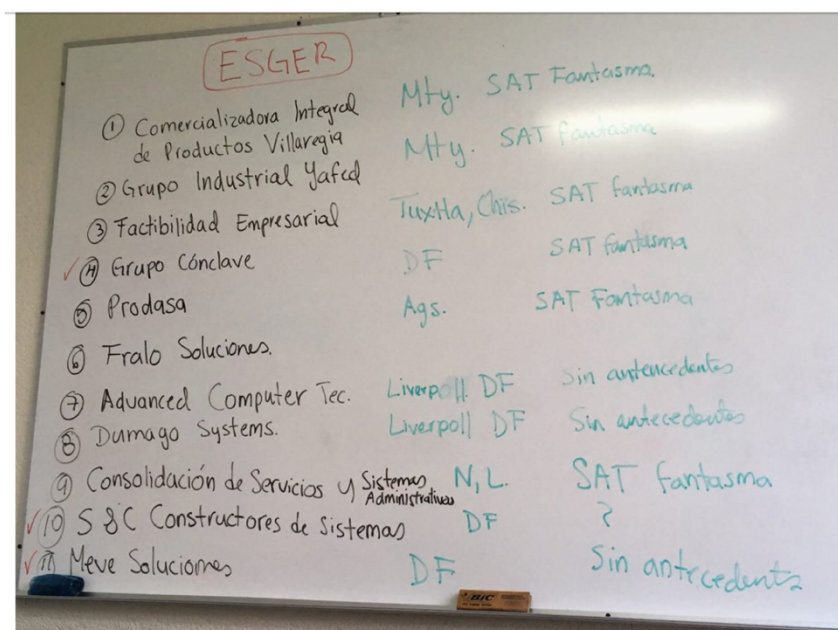 ESGER
① Comercializadora Integral Mty. SAT Fantasma.
de Productos Villaregia Mty. SAT fantasma
② Grupo Industrial Yafed
③ Factibilidad Empresarial Tuxtla, Chis. SAT fantasma
✓ ④ Grupo Cónclave DF SAT fantasma
⑤ Prodasa Ags. SAT Fantasma
⑥ Fralo Soluciones.
⑦ Advanced Computer Tec. Liverpoll DF Sin antencedentes
⑧ Dumago Systems. Liverpoll DF Sin antecedentes
⑨ Consolidación de Servicios y Sistemas Administrativos N,L. SAT fantasma
✓ ⑩ S&C Constructores de Sistemas DF ?
✓ ⑪ Meve Soluciones DF Sin antecedents
BIC